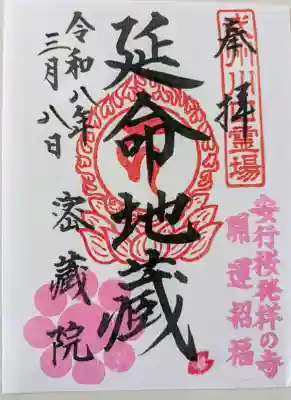 奉拝
安行桜発祥の寺
開運招福
延命地蔵
密蔵院
令和八年
三月八日